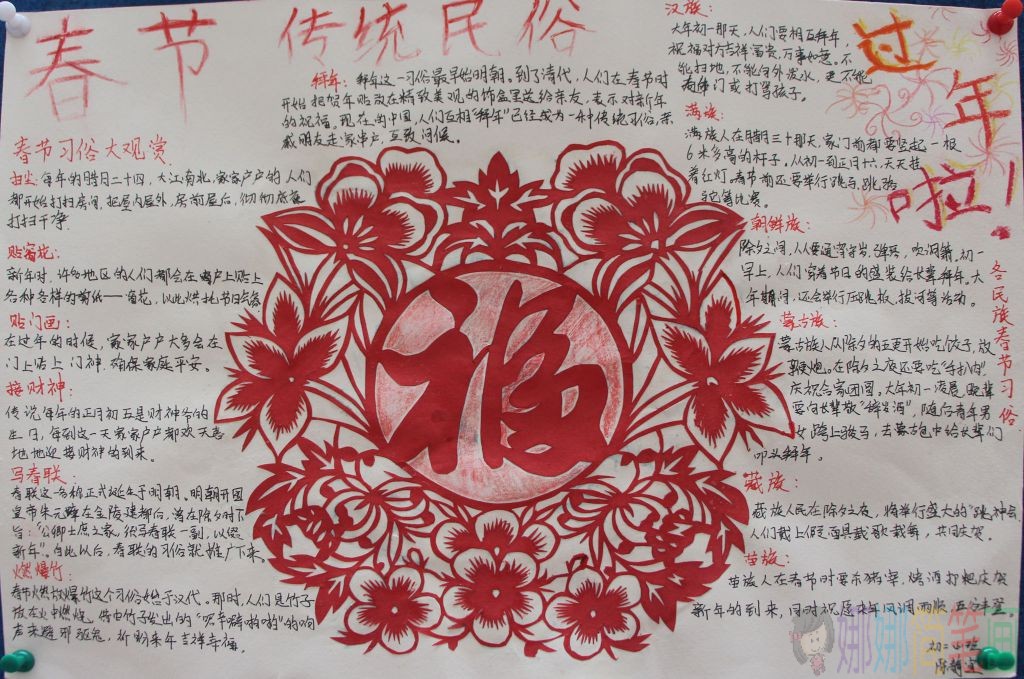 春节 传统民俗
过年啦！
拜年：拜年这一习俗最早始明朝。到了清代，人们在春节时
开始把贺年贴放在精致美观的饰盒里送给亲友，表示对新年
的祝福。现在的中国，人们互相“拜年”已经成为一种传统习俗，亲
戚朋友走家串户，互致问候。
春节习俗大观赏
扫尘：每年的腊月二十四，大江南北，家家户户的人们
都开始打扫房间，把屋内屋外，房前屋后，彻彻底底
打扫干净
贴窗花：
新年时，许多地区的人们都会在窗户上贴上
各种各样的剪纸——窗花，以此烘托节日气氛
贴门画：
在过年的时候，家家户户大多会在
门上贴上门神，确保家庭平安。
接财神：
传说每年的正月初五是财神爷的
生日，每到这一天家家户户都欢天喜
地地迎接财神的到来。
写春联：
春联这一名称正式诞生于明朝。明朝开国
皇帝朱元璋在金陵建都后，曾在除夕时下
旨：“公卿士庶之家，须写春联一副，以缀
新年”。自此以后，春联的习俗就推广下来
燃爆竹：
春节燃放爆竹这个习俗始于汉代。那时，人们是竹子
放在火中燃烧，借由竹子发出的“噼噼啪啪”的响
声来避邪驱鬼，祈盼来年吉祥幸福。
汉族：
大年初一那天，人们要相互拜年，
祝福对方吉祥富贵，万事如意。不
能扫地，不能向外泼水，更不能
门或打骂孩子。
满族：
满族人在腊月三十那天，家门前都要竖起一根
6米多高的杆子，从初一到正月十六，天天挂
着红灯。春节前还要举行跳马、跳骆
驼等比赛。
各民族春节习俗
朝鲜族：
除夕之间，人人要通宵守岁，弹琴，吹洞箫，初一
早上，人们穿着节日的盛装给长辈拜年。大
年期间，还会举行压跳板，拔河等活动。
蒙古族：
蒙古族人从除夕的五更开始吃饺子，放
鞭炮。在除夕之夜还要吃“手扒肉”
庆祝合家团圆。大年初一凌晨晚辈
要向长辈敬“辞岁酒”，随后青年男
女跨上骏马，去蒙古包中给长辈们
叩头拜年。
藏族：
藏族人民在除夕之夜，将举行盛大的“跳神会”
人们戴上假面具载歌载舞，共同庆贺。
苗族：
苗族人在春节时要杀猪宰，烤酒打粑庆贺
新年的到来，同时祝愿来年风调雨顺，五谷丰登。
福